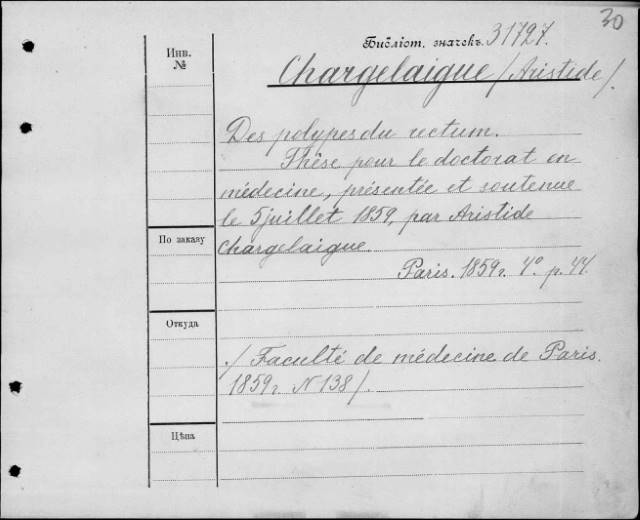 30
Библіот. значекъ. 31727.
Инв.
№
Chargelaigue /Aristide/.
Des polypes du rectum.
Thèse pour le doctorat en
médecine, présentée et soutenue
le 5 juillet 1859, par Aristide
Chargelaigue.
По заказу
Paris. 1859 г. 4° p. 44.
Откуда
/Faculté de médecine de Paris.
1859 г. N 138/.
Цѣна